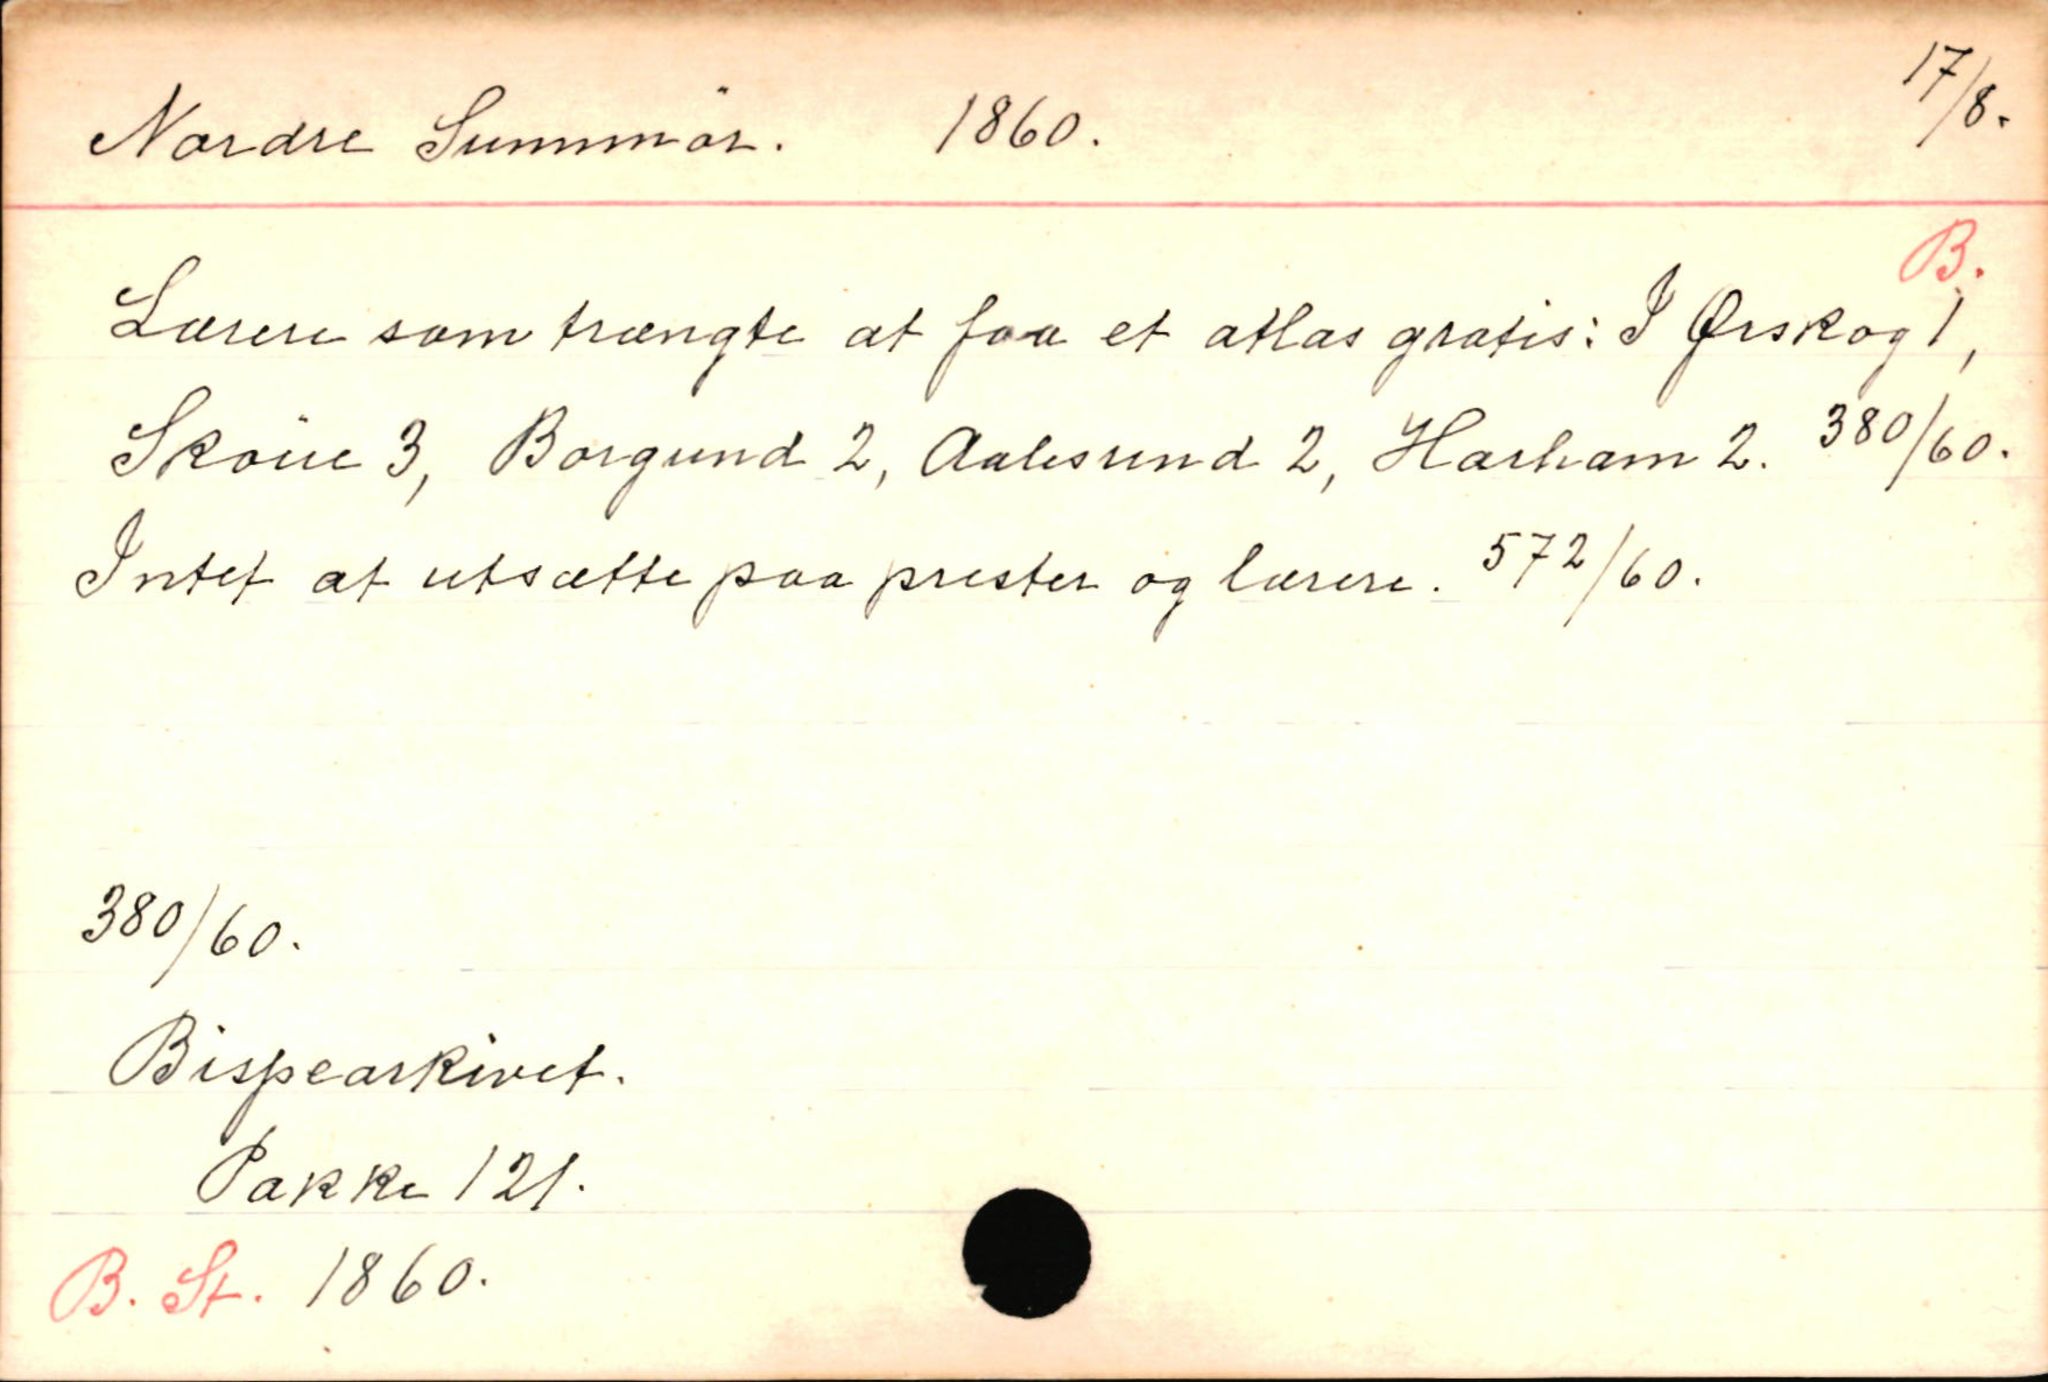 Nordre Sunnmör. 1860. 17/8.
B.
Lærere som trængte at faa et atlas gratis: I Ørskog 1,
Sköiie 3, Borgund 2, Aalesund 2, Harham 2. 380/60.
Intet at utsætte paa prester og lærere. 572/60.
380/60.
Bispearkivet.
Pakke 121.
B. St. 1860.